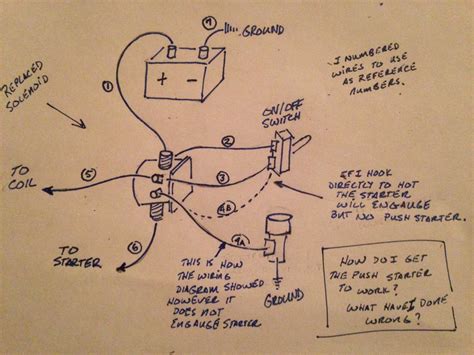 7
GROUND
+ -
1
I NUMBERED
WIRES TO USE
AS REFERENCE
NUMBERS.
REPLACED
SOLENOID
ON/OFF
SWITCH
2
3
TO
COIL
5
4B
IF I HOOK
DIRECTLY TO HOT
THE STARTER
WILL ENGAUGE
BUT NO PUSH STARTER.
6
TO
STARTER
4A
THIS IS HOW
THE WIRING
DIAGRAM SHOWED
HOWEVER IT
DOES NOT
ENGAUGE STARTER
GROUND
HOW DO I GET
THE PUSH STARTER
TO WORK?
WHAT HAVE I DONE
WRONG?